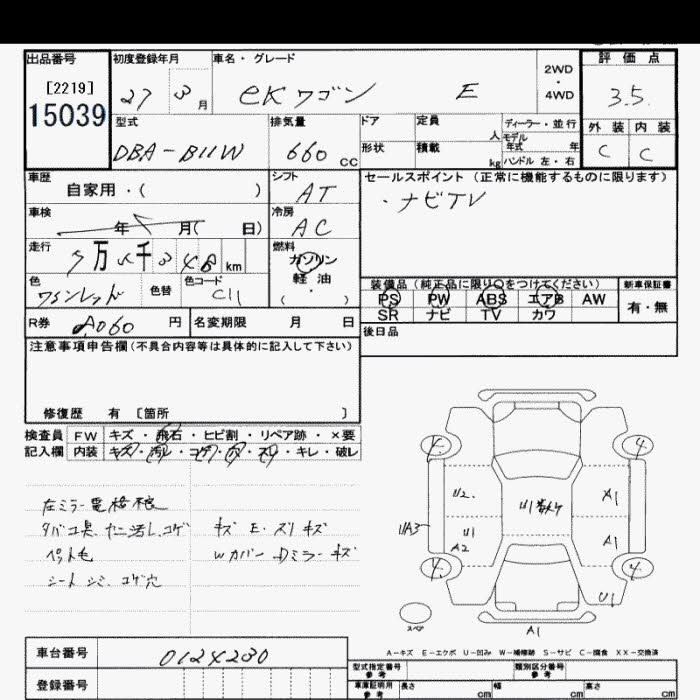 出品番号 初度登録年月 車名・グレード 評価点
[2219]
15039
27 3月 eKワゴン E 2WD・4WD 3.5
型式 排気量 ドア 定員 人 ディーラー・並行 外装 内装
DBA-B11W 660cc 形状 積載 kg モデル年式 年 ハンドル 左・右 C C
車歴 シフト セールスポイント (正常に機能するものに限ります)
自家用・( ) AT ・ナビTV
車検 冷房
年 月( 日) AC
走行 燃料
万 千 3 4 8 km ガソリン
軽油
・( )
色 色替 色コード
ワインレッド C11
装備品(純正品に限り○をつけてください) 新車保証書
PS PW ABS エアB AW 有・無
SR ナビ TV カワ
R券 円 名変期限 月 日 後日品
注意事項申告欄(不具合内容等は具体的に記入して下さい)
修復歴 有 〔箇所 〕
検査員 FW キズ・飛石・ヒビ割・リペア跡・×要
記入欄 内装 キズ・汚レ・コゲ・穴・スリ・キレ・破レ
左ミラー電格
タバコ臭 ヤニ汚レ コゲ キズ E・スリキズ
ペット毛 Wカバー Dミラーキズ
シート シミ コゲ穴
4 4
U2 A1
UA3 U1 A1
A2
4 4
U1
スペア
A1
A-キズ E-エクボ U-凹み W-補修跡 S-サビ C-腐食 XX-交換済
車台番号 0124230
登録番号
型式指定番号 参考 類別区分番号 参考
車庫証明用 参考 長さ cm 幅 cm 高さ cm